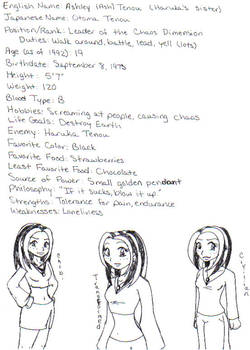 English Name: Ashley (Ash) Tenou (Haruka's Sister)
Japanese Name: Otoma Tenou
Position/Rank: Leader of the Chaos Dimension
Duties: Walk around, battle, lead, yell (lots)
Age (as of 1992): 19
Birthdate: September 8, 1973
Height: 5'7"
Weight: 120
Blood Type: B
Hobbies: Screaming at people, causing chaos
Life Goals: Destroy Earth
Enemy: Haruka Tenou
Favorite Color: Black
Favorite Food: Strawberries
Least Favorite Food: Chocolate
Source of Power: Small golden pendant
Philosophy: "If it sucks, blow it up."
Strengths: Tolerance for pain, endurance
Weaknesses: Loneliness
Chibi
Civilian